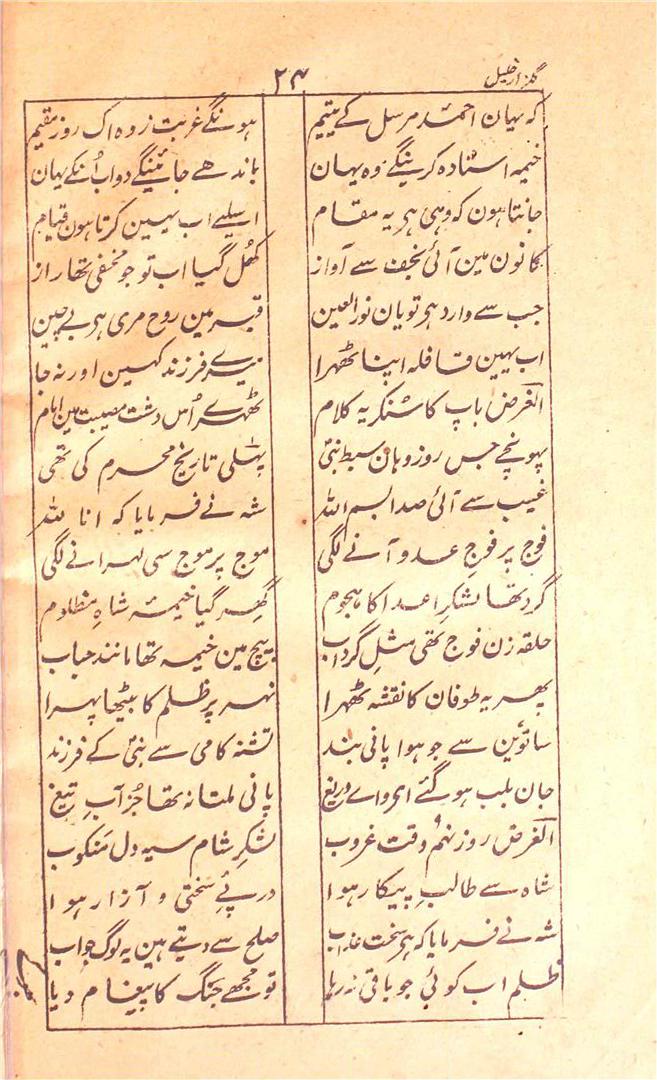 گلزار خلیل
۲۴
کہ یہان احمد مرسل کے یتیم
ہونگے غربت زدہ اک روز مقیم
خیمہ استادہ کرینگے وہ یہان
باندھے جائینگے دواب اُنکے یہان
جانتا ہون کہ وہی ہر یہ مقام
اسلیے اب یہین کرتا ہون قیام
کانون مین آئی نجف سے آواز
کھُل گیا اب تو جو مخفی تھا راز
جب سے وارد ہر تو یان نور العین
قبر مین روح مری ہر بےچین
اب یہین قافلہ اپنا ٹھہرا
میرے فرزند کہین اور نہ جا
الغرض باپ کا سُنکر یہ کلام
ٹھہرے اُس دشت مصیبت مین امام
پہونچے جس روز وہان سبط نبیؐ
پہلی تاریخ محرم کی تھی
غیب سے آئی صدا بسم اللہ
شہ نے فرمایا کہ انا للہ
فوج پر فوجِ عدو آنے لگی
موج پر موج سی لہرانے لگی
گرد تھا لشکرِ اعدا کا ہجوم
گھر گیا خیمۂ شاہِ مظلوم
حلقہ زن فوج تھی مثلِ گرداب
بیچ مین خیمہ تھا مانند حباب
پھر یہ طوفان کا نقشہ ٹھہرا
نہر پر ظلم کا بیٹھا پہرا
ساتوین سے جو ہوا پانی بند
تشنہ کامی سے نبیؐ کے فرزند
جان بلب ہو گئے اے وا دریغ
پانی ملتا نہ تھا جُز آبِ تیغ
الغرض روز نہم وقت غروب
لشکرِ شام سیہ دل منکوب
شاہ سے طالبِ پیکار ہوا
درپئے سختی و آزار ہوا
شہ نے فرمایا کہ ہر سخت عذاب
صلح سے دیتے ہین یہ لوگ جواب
ظلم اب کوئی جو باقی نہ رہا
تو مجھے جنگ کا پیغام دیا